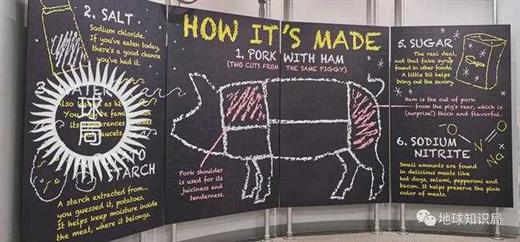 HOW IT'S MADE
1. PORK WITH HAM
(TWO CUTS FROM THE SAME PIGGY)
2. SALT
Sodium chloride.
If you've eaten today,
there's a good chance
you've had it.
Pork shoulder
is used for its
juiciness and
tenderness.
STARCH
A starch extracted from...
you guessed it, potatoes.
It helps keep moisture inside
the meat, where it belongs.
5. SUGAR
The real deal,
not that fake syrup
found in other foods.
A little bit helps
bring out the savory.
Sugar
Ham is the cut of pork
from the pig's rear, which is
(surprise!) thick and flavorful.
6. SODIUM
NITRITE
Small amounts are found
in delicious meats like
hot dogs, salami, pepperoni and
bacon. It helps preserve the pink
color of meats.
局
地球知识局